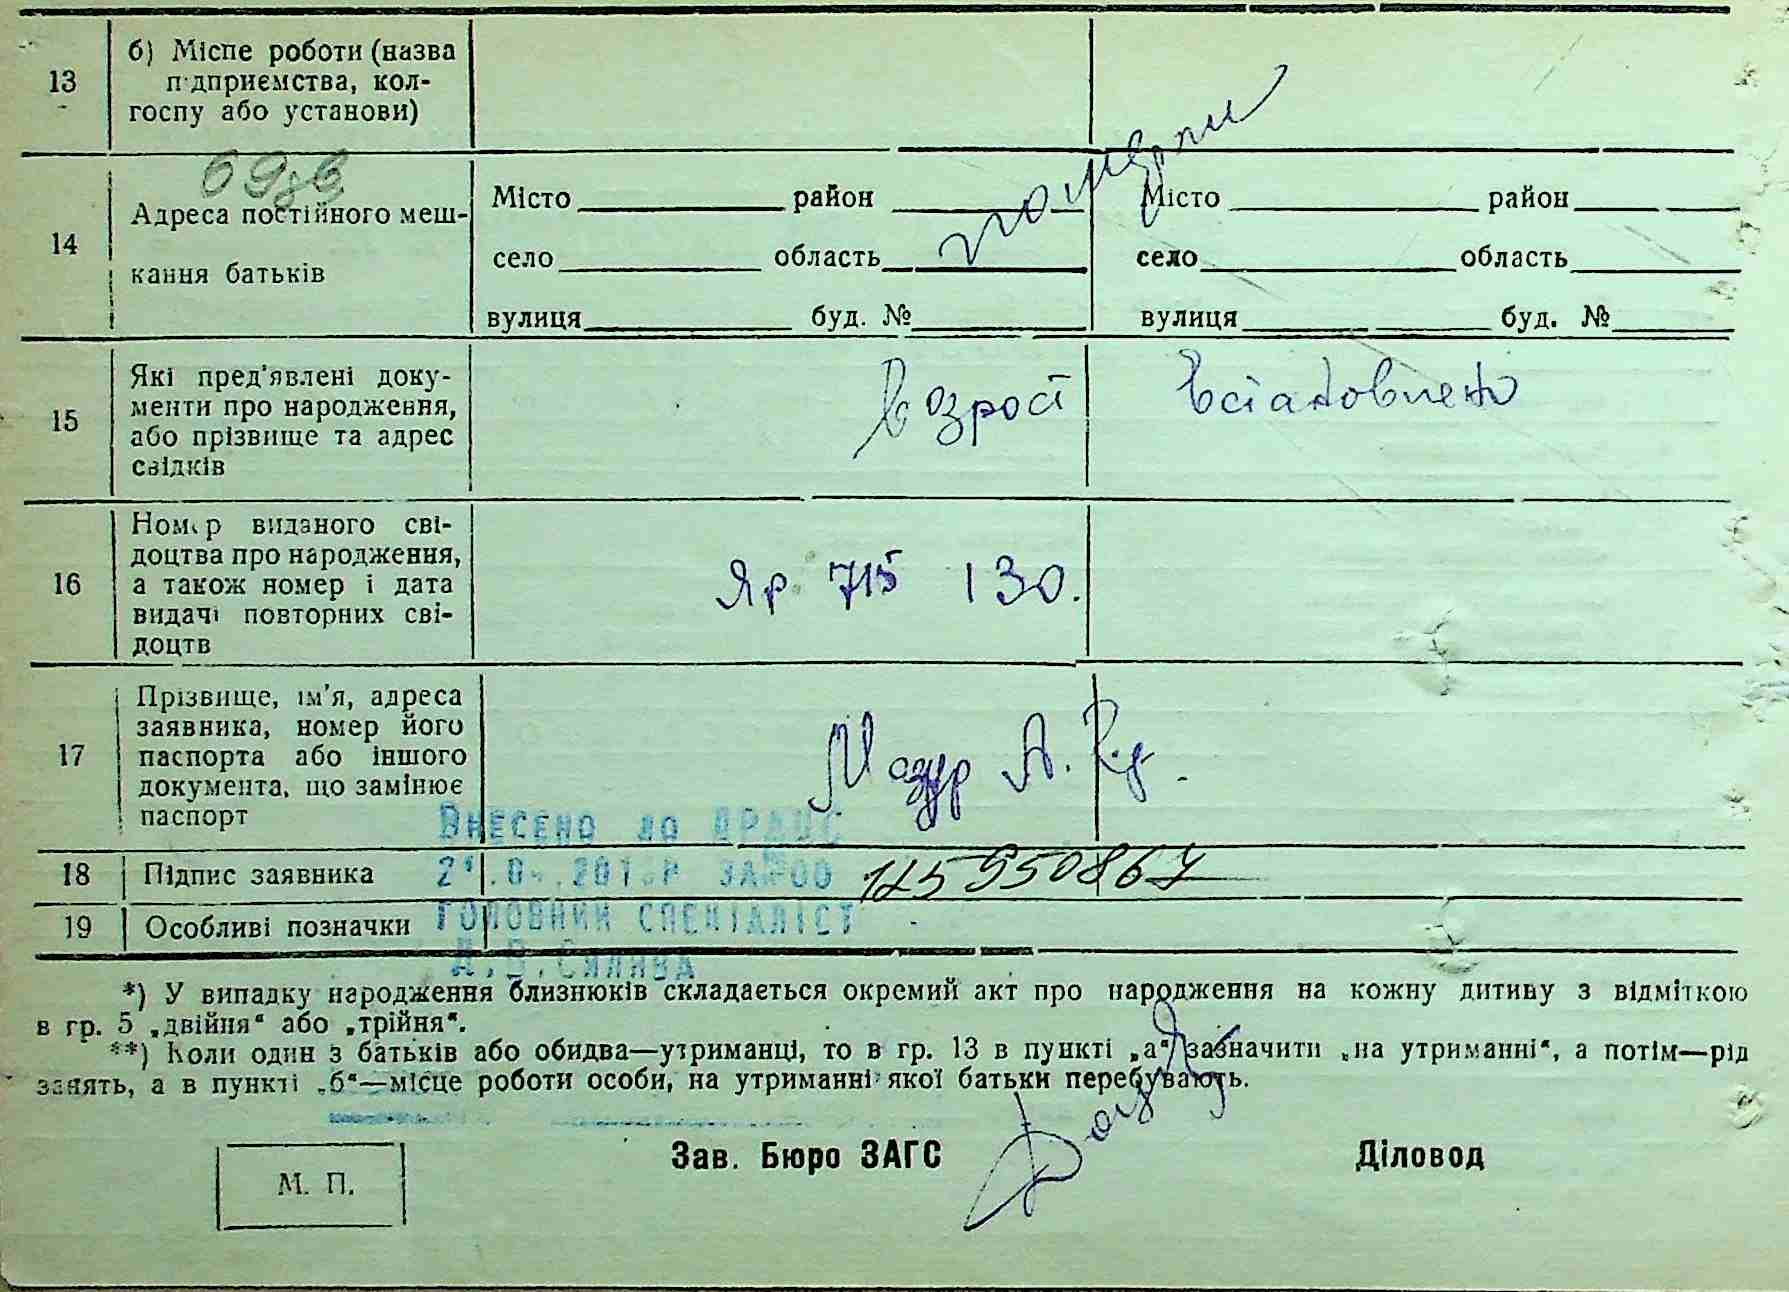 б) Місце роботи (назва
13
підприємства, кол-
госпу або установи)
померли
Місто район Місто район
Адреса постійного меш-
14
село область село область
кання батьків
вулиця буд. № вулиця буд. №
Які пред'явлені доку-
менти про народження,
15
або прізвище та адрес
свідків
Возрост Встановлено
Номер виданого сві-
доцтва про народження,
16
а також номер і дата
видачі повторних сві-
доцтв
Яр 715 130.
Прізвище, ім'я, адреса
заявника, номер його
17
паспорта або іншого
документа, що замінює
паспорт
Мазур А.
Внесено до ДРАЦС
18 Підпис заявника
головний спеціаліст
19 Особливі позначки
*) У випадку народження близнюків складається окремий акт про народження на кожну дитину з відміткою
в гр. 5 „двійня“ або „трійня“.
**) Коли один з батьків або обидва—утриманці, то в гр. 13 в пункті „а“ зазначити „на утриманні“, а потім—рід
занять, а в пункті „б“—місце роботи особи, на утриманні якої батьки перебувають.
Зав. Бюро ЗАГС Діловод
М. П.